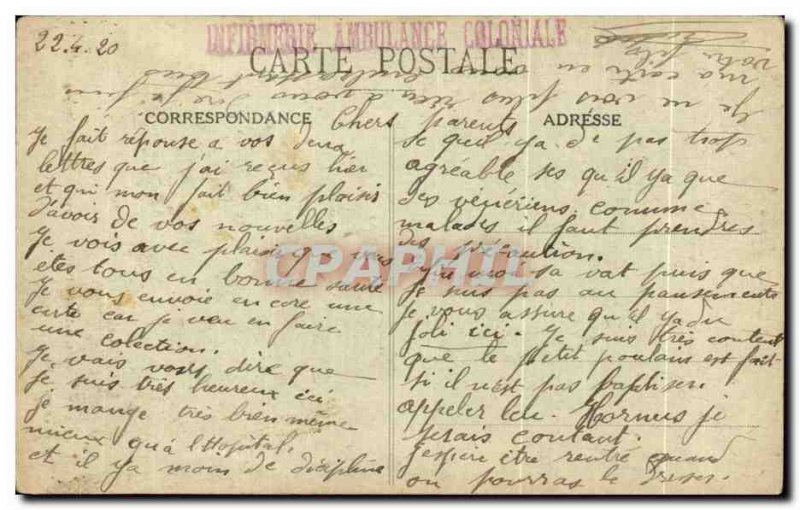 22.4.20
INFIRMERIE AMBULANCE COLONIALE
CARTE POSTALE
CORRESPONDANCE
ADRESSE
Chers parents
Je fait réponse a vos deux
lettres que j'ai reçus hier
et qui mon fait bien plaisir
d'avoir de vos nouvelles.
Je vois avec plaisir que vous
etes tous en bonne santé
Je vous envoie encore une
carte car je veu en faire
une colection.
Je vais vous dire que
je suis très heureux ici
je mange très bien même
mieux qu'à l'Hopital.
et il ya moin de dicipline
se qu'il ya de pas trop
agréable ses qu'il ya que
des vénériens, comme
malades il faut prendres
des précaution.
moi sa vat puis que
je suis pas au pansements
je vous assure qu'il ya du
joli ici. Je suis très contant
que le petit poulain est fait
si il n'est pas baptiser
appeler leu. Hornus je
serais contant.
j'espère être rentré quand
on pourras le
Je ne vois plus rien a vous dire
ma carte en vous
votre fils
CPAPHIL